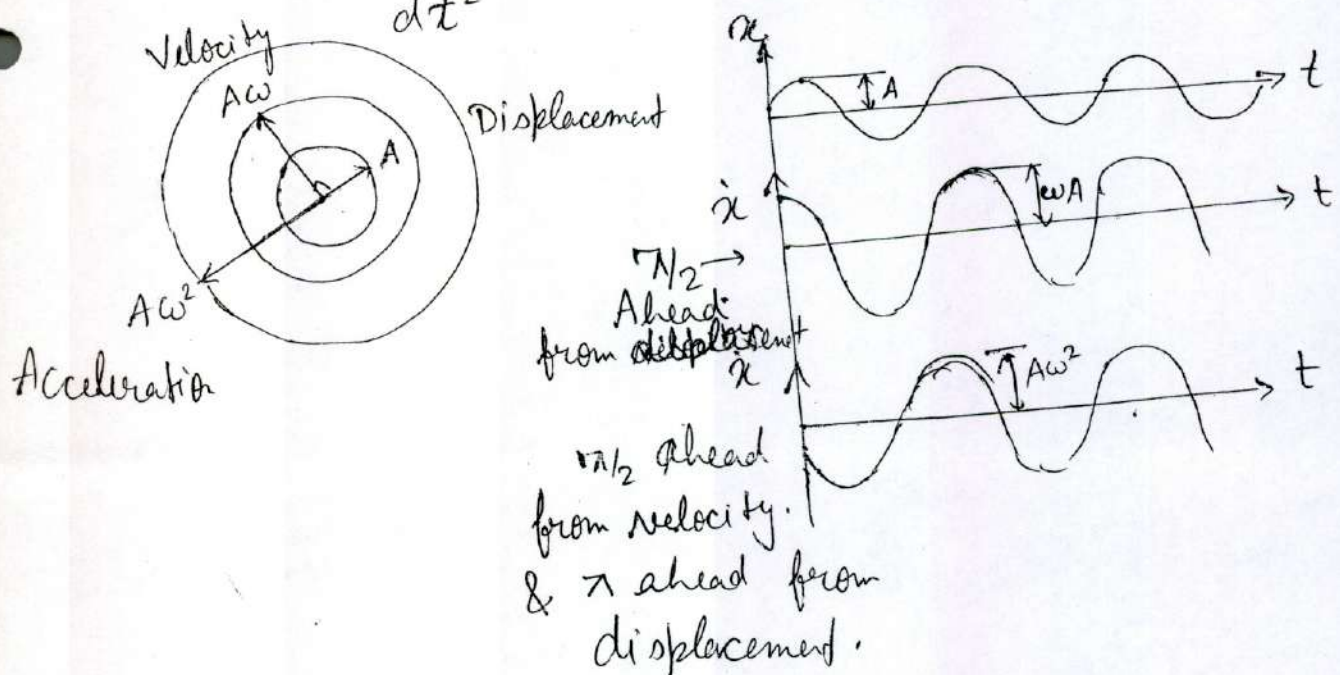 dt²
Velocity
Aω
Displacement
A
Aω²
Acceleration
x
A
t
ẋ
ωA
t
π/2 →
Ahead
from
ẋ
Aω²
t
π/2 Ahead
from velocity.
& π ahead from
displacement.